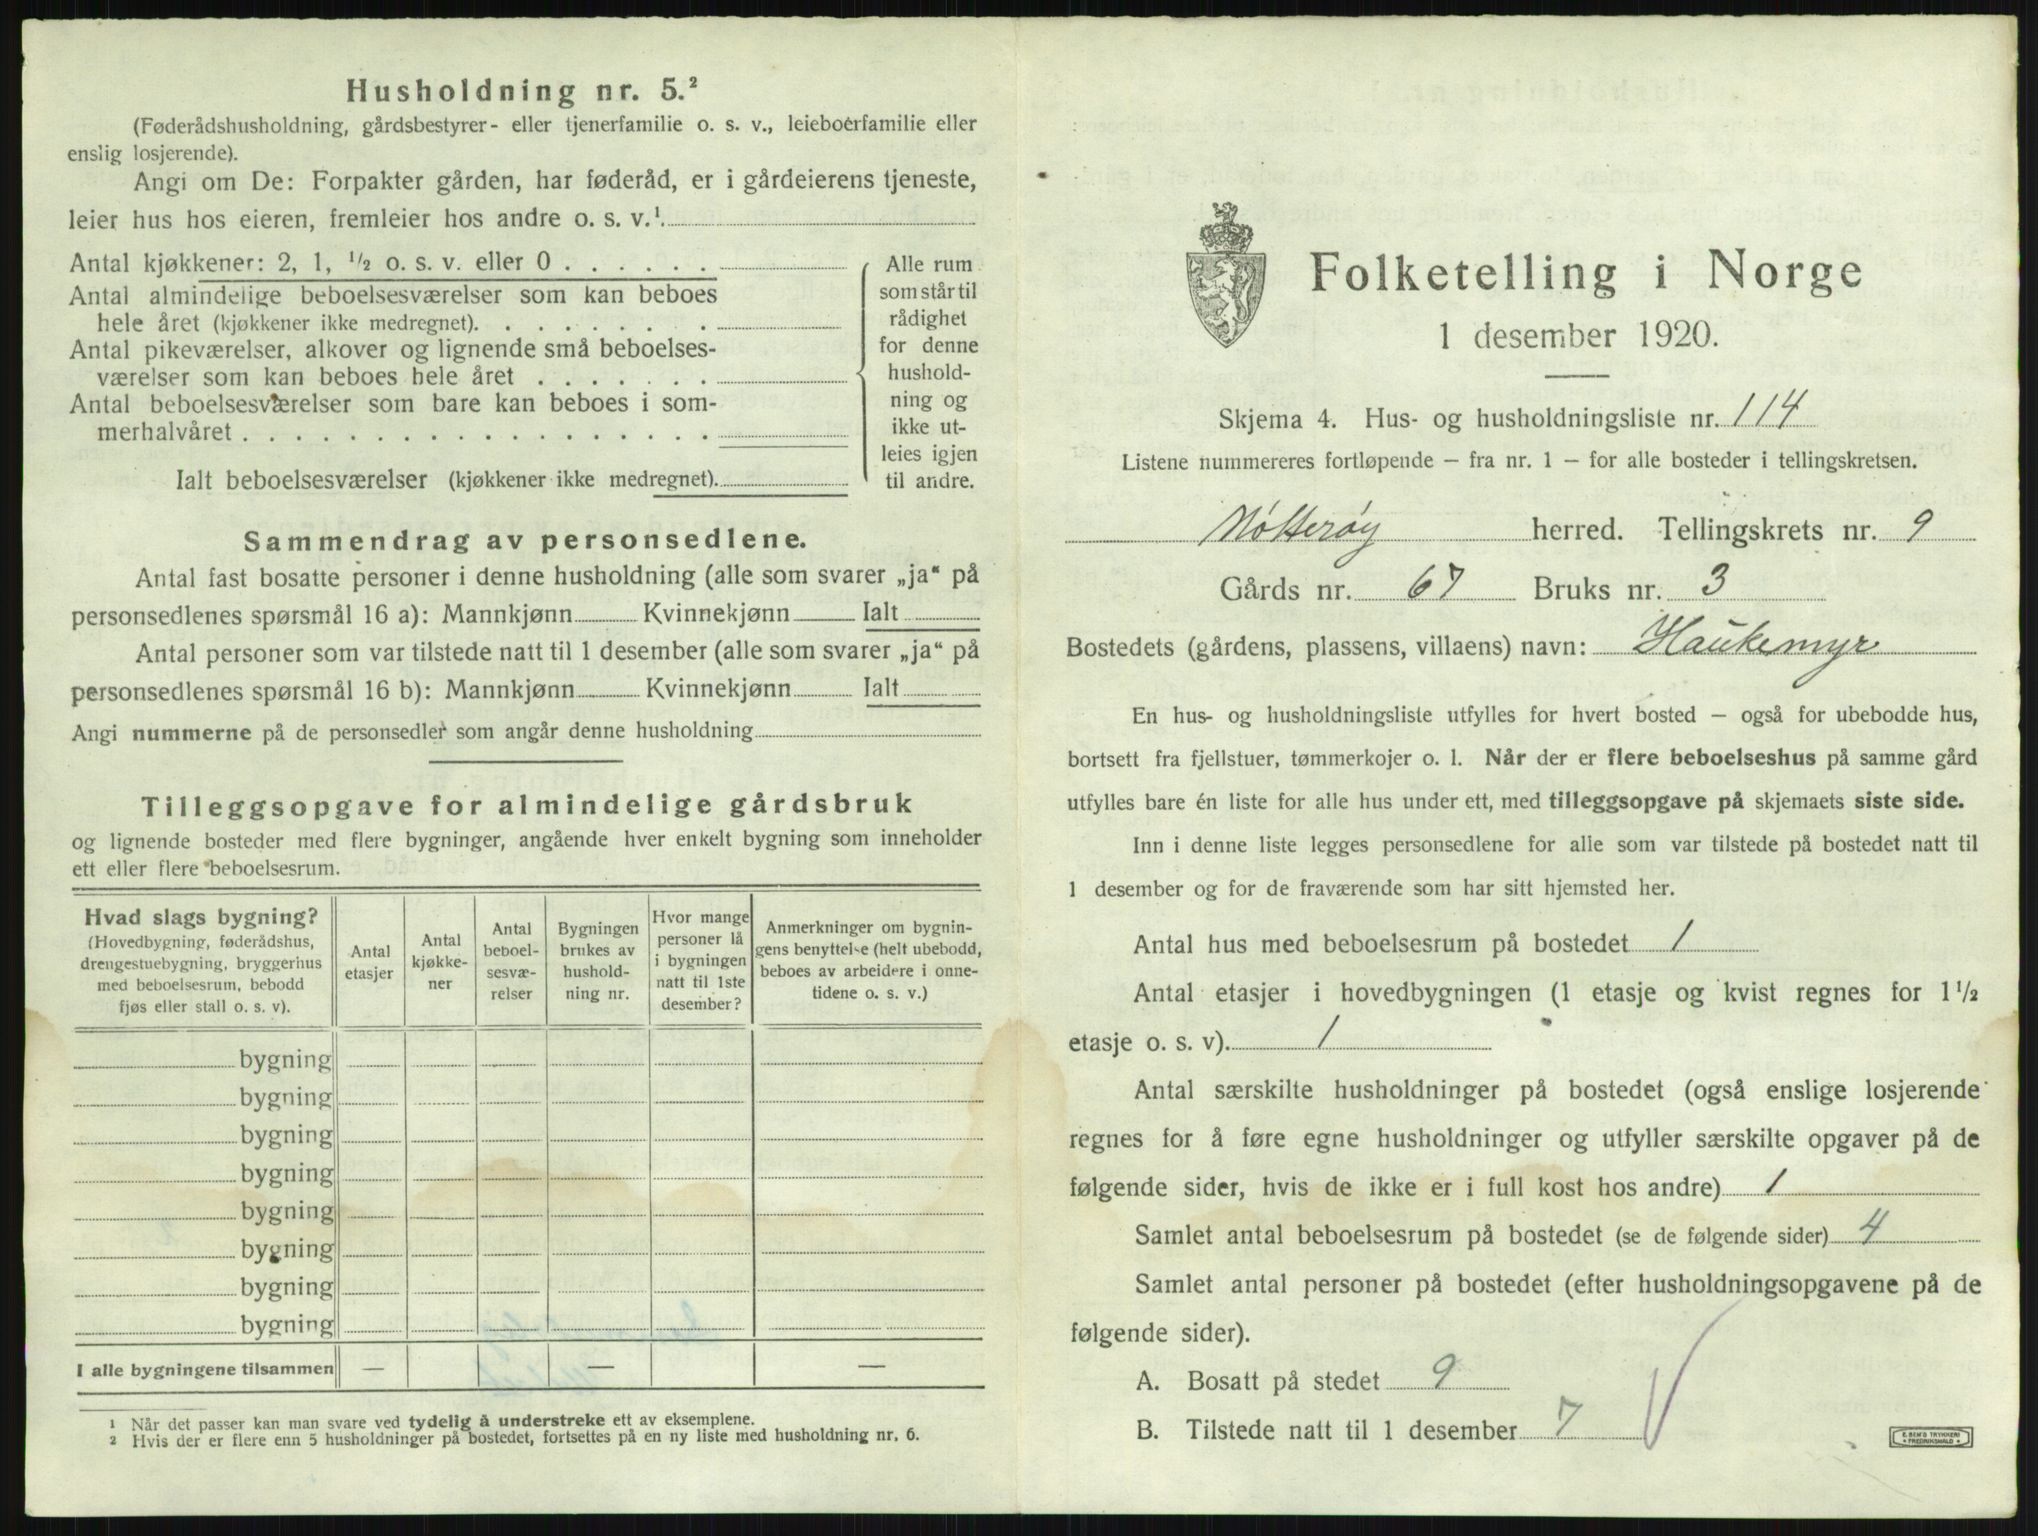 Husholdning nr. 5.²
(Føderådshusholdning, gårdsbestyrer- eller tjenerfamilie o. s. v., leieboerfamilie eller
enslig losjerende).
Angi om De: Forpakter gården, har føderåd, er i gårdeierens tjeneste,
leier hus hos eieren, fremleier hos andre o. s. v.¹
Antal kjøkkener: 2, 1, ½ o. s. v. eller 0 . . . . . .
Antal almindelige beboelsesværelser som kan beboes
hele året (kjøkkener ikke medregnet). . . . . . . . .
Antal pikeværelser, alkover og lignende små beboelses-
værelser som kan beboes hele året . . . . . . .
Antal beboelsesværelser som bare kan beboes i som-
merhalvåret . . . . . . . . . . . . . . . . . .
Ialt beboelsesværelser (kjøkkener ikke medregnet).
Alle rum
som står til
rådighet
for denne
hushold-
ning og
ikke ut-
leies igjen
til andre.
Sammendrag av personsedlene.
Antal fast bosatte personer i denne husholdning (alle som svarer „ja“ på
personsedlenes spørsmål 16 a): Mannkjønn Kvinnekjønn Ialt
Antal personer som var tilstede natt til 1 desember (alle som svarer „ja“ på
personsedlenes spørsmål 16 b): Mannkjønn Kvinnekjønn Ialt
Angi nummerne på de personsedler som angår denne husholdning
Tilleggsopgave for almindelige gårdsbruk
og lignende bosteder med flere bygninger, angående hver enkelt bygning som inneholder
ett eller flere beboelsesrum.
Hvad slags bygning?
(Hovedbygning, føderådshus,
drengestuebygning, bryggerhus
med beboelsesrum, bebodd
fjøs eller stall o. s. v).
Antal
etasjer
Antal
kjøkke-
ner
Antal
beboel-
sesvæ-
relser
Bygningen
brukes av
hushold-
ning nr.
Hvor mange
personer lå
i bygningen
natt til 1ste
desember?
Anmerkninger om bygnin-
gens benyttelse (helt ubebodd,
beboes av arbeidere i onne-
tidene o. s. v.)
bygning
bygning
bygning
bygning
bygning
bygning
bygning
bygning
I alle bygningene tilsammen — — —
¹ Når det passer kan man svare ved tydelig å understreke ett av eksemplene.
² Hvis der er flere enn 5 husholdninger på bostedet, fortsettes på en ny liste med husholdning nr. 6.
Folketelling i Norge
1 desember 1920.
Skjema 4. Hus- og husholdningsliste nr. 114
Listene nummereres fortløpende – fra nr. 1 – for alle bosteder i tellingskretsen.
Nøtterøy herred. Tellingskrets nr. 9
Gårds nr. 67 Bruks nr. 3
Bostedets (gårdens, plassens, villaens) navn: Haukemyr
En hus- og husholdningsliste utfylles for hvert bosted – også for ubebodde hus,
bortsett fra fjellstuer, tømmerkojer o. l. Når der er flere beboelseshus på samme gård
utfylles bare én liste for alle hus under ett, med tilleggsopgave på skjemaets siste side.
Inn i denne liste legges personsedlene for alle som var tilstede på bostedet natt til
1 desember og for de fraværende som har sitt hjemsted her.
Antal hus med beboelsesrum på bostedet 1
Antal etasjer i hovedbygningen (1 etasje og kvist regnes for 1½
etasje o. s. v). 1
Antal særskilte husholdninger på bostedet (også enslige losjerende
regnes for å føre egne husholdninger og utfyller særskilte opgaver på de
følgende sider, hvis de ikke er i full kost hos andre) 1
Samlet antal beboelsesrum på bostedet (se de følgende sider) 4
Samlet antal personer på bostedet (efter husholdningsopgavene på de
følgende sider).
A. Bosatt på stedet 9
B. Tilstede natt til 1 desember 7
E. SEM'S TRYKKERI
FREDRIKSHALD